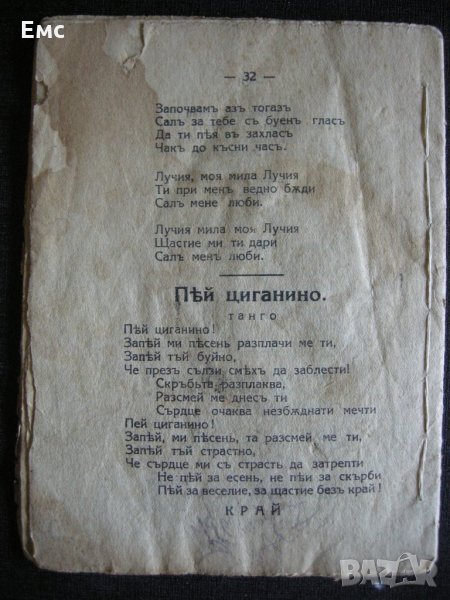 Емс
— 32 —
Започвамъ азъ тогазъ
Салъ за тебе съ буенъ гласъ
Да ти пѣя въ захласъ
Чакъ до късни часъ.
Лучия, моя мила Лучия
Ти при менъ ведно бѫди
Салъ мене люби.
Лучия мила моя Лучия
Щастие ми ти дари
Салъ менъ люби.
Пѣй циганино.
танго
Пѣй циганино!
Запѣй ми пѣсень разплачи ме ти,
Запѣй тъй буйно,
Че презъ сълзи смѣхъ да заблести!
Скръбьта разплаква,
Разсмей ме днесъ ти
Сърдце очаква незбѫднати мечти
Пей циганино!
Запѣй, ми пѣсень, та разсмей ме ти,
Запѣй тъй страстно,
Че сърдце ми съ страсть да затрепти
Не пѣй за есень, не пѣй за скърби
Пѣй за веселие, за щастие безъ край!
КРАЙ
BAZAR.BG